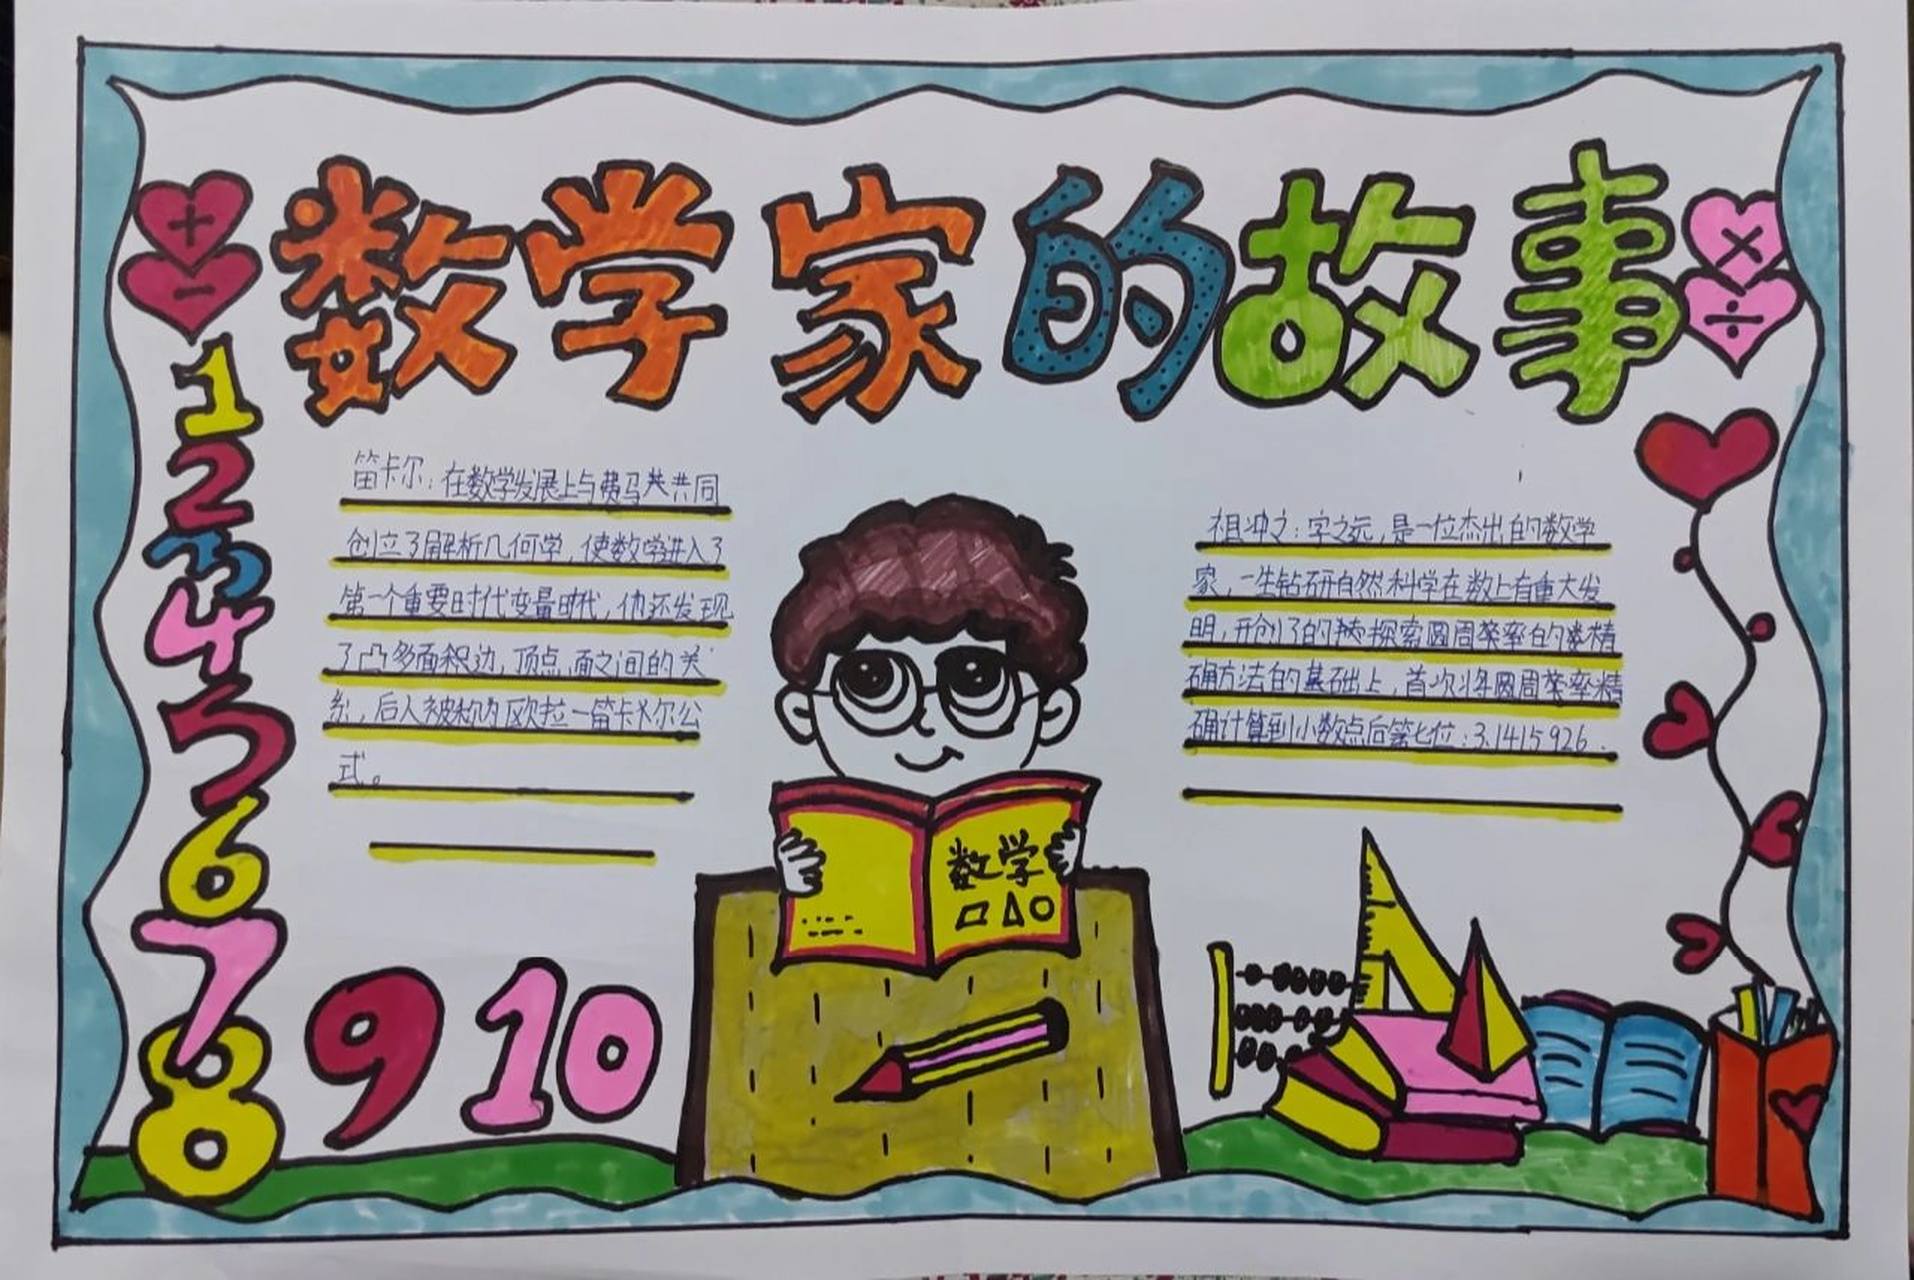 数学家的故事
+
−
×
÷
1
2
3
4
5
6
7
8
9 10
笛卡尔：在数学发展上与费马共共同
创立了解析几何学，使数学进入了
第一个重要时代变量时代，他还发现
了凸多面积边，顶点，面之间的关
系，后人被称为欧拉一笛卡尔公
式。
祖冲之：字之远，是一位杰出的数学
家，一生钻研自然科学在数上有重大发
明，开创了的探索圆周率的精
确方法的基础上，首次将圆周率精
确计算到小数点后第七位：3.1415926.
数学